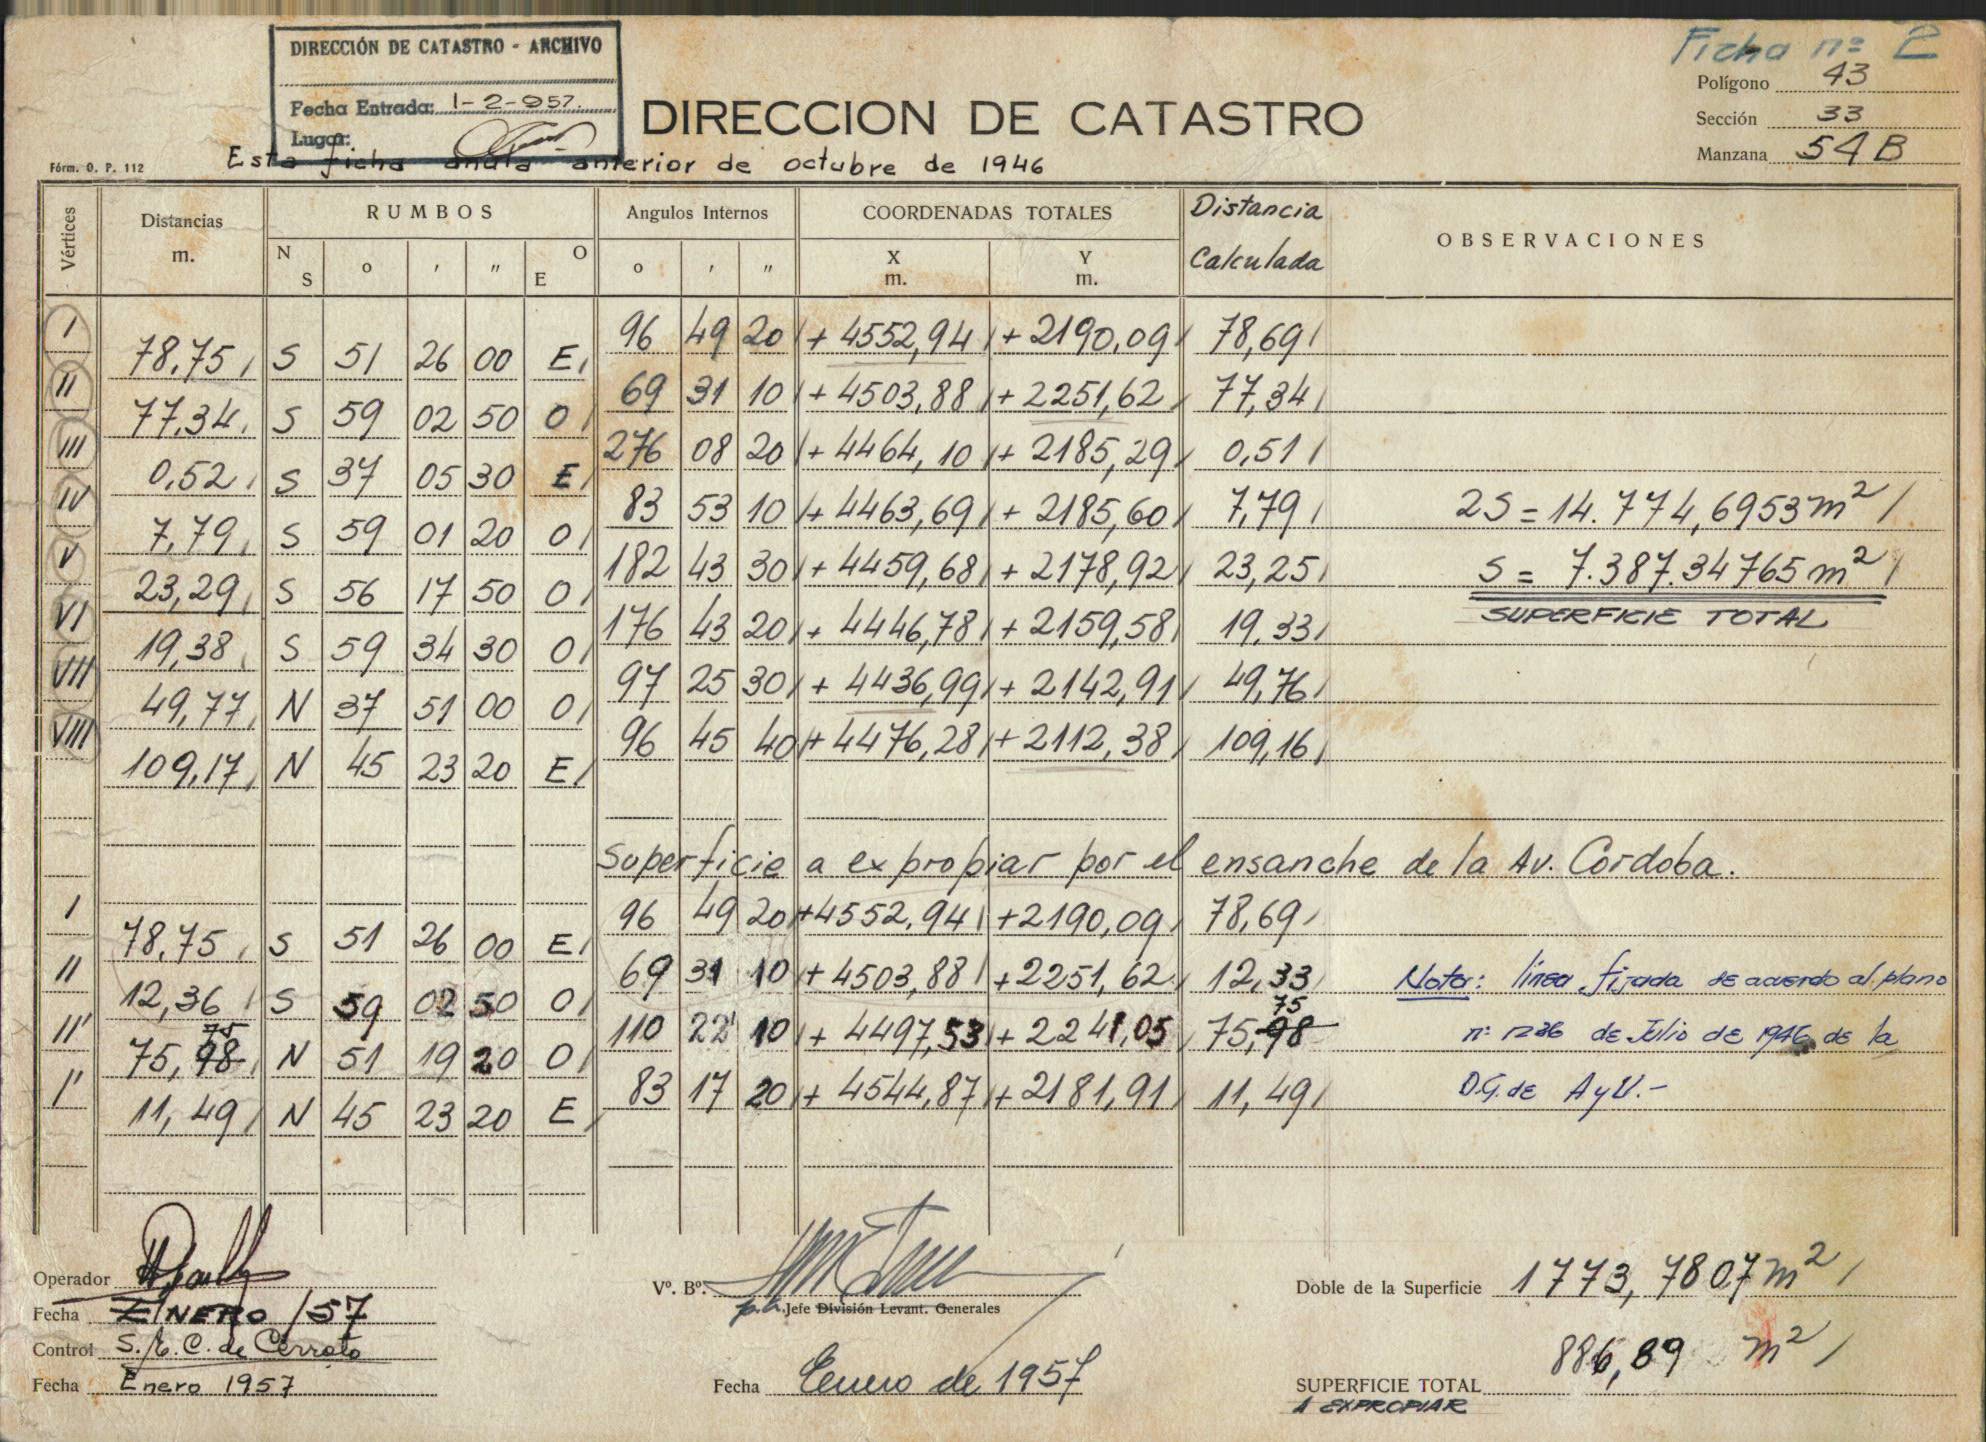 Ficha nº 2
DIRECCIÓN DE CATASTRO - ARCHIVO
Fecha Entrada: 1-2-957.
Lugar:
DIRECCION DE CATASTRO
Polígono 43
Sección 33
Manzana 54 B
Fórm. O. P. 112
Esta ficha anula anterior de octubre de 1946
Vértices Distancias m. RUMBOS Angulos Internos COORDENADAS TOTALES Distancia Calculada OBSERVACIONES
N S o ′ ″ O E o ′ ″ X m. Y m.
I 96 49 20 + 4552,94 + 2190,09 78,69
78,75 S 51 26 00 E
II 69 31 10 + 4503,88 + 2251,62 77,34
77,34 S 59 02 50 O
III 276 08 20 + 4464,10 + 2185,29 0,51
0,52 S 37 05 30 E
IV 83 53 10 + 4463,69 + 2185,60 7,79 2S = 14.774,6953 m²
7,79 S 59 01 20 O
V 182 43 30 + 4459,68 + 2178,92 23,25 S = 7.387.34765 m²
23,29 S 56 17 50 O
SUPERFICIE TOTAL
VI 176 43 20 + 4446,78 + 2159,58 19,33
19,38 S 59 34 30 O
VII 97 25 30 + 4436,99 + 2142,91 49,76
49,77 N 37 51 00 O
VIII 96 45 40 + 4476,28 + 2112,38 109,16
109,17 N 45 23 20 E
Superficie a expropiar por el ensanche de la Av. Cordoba.
I 96 49 20 +4552,94 +2190,09 78,69
78,75 S 51 26 00 E
II 69 31 10 + 4503,88 +2251,62 12,33 Nota: línea fijada de acuerdo al plano
12,36 S 59 02 50 O
75
II' 110 22' 10 + 4497,53 + 2241,05 75,98 nº 1236 de Julio de 1946 de la
75
75,98 N 51 19 20 O
I' 83 17 20 + 4544,87 + 2181,91 11,49 D.G. de A y U.-
11,49 N 45 23 20 E
Operador
Fecha ENERO / 57
Control S. E. C. de Cerrato
Fecha Enero 1957
Vº. Bº.
p.a. Jefe División Levant. Generales
Fecha Enero de 1957
Doble de la Superficie 1773,7807 m²
886,89 m²
SUPERFICIE TOTAL
A EXPROPIAR